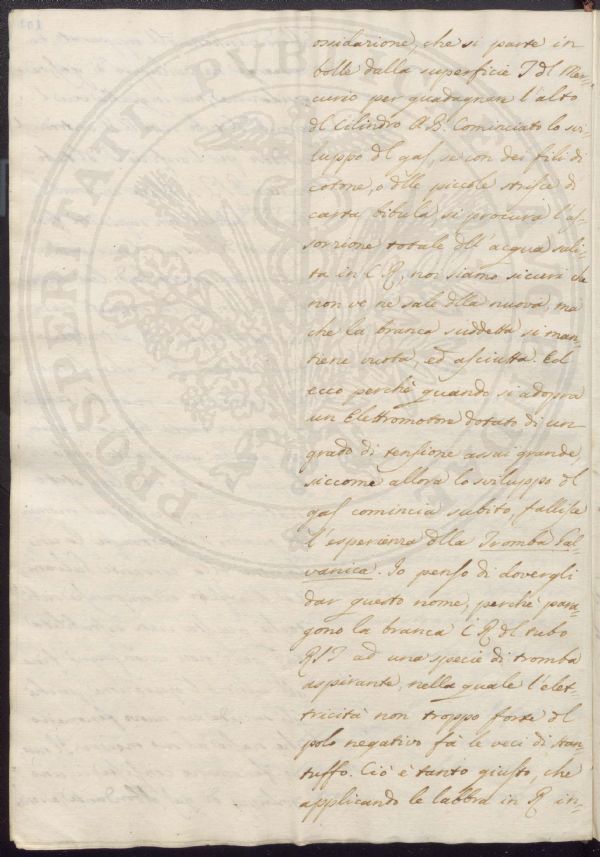 ossidazione, che si parte in
bolle dalla superficie T del Mer-
curio per guadagnar l'alto
del Cilindro AB. Cominciato lo svi-
luppo del gas, se con dei fili di
cotone, o delle piccole strisce di
carta bibula si procura l'as-
sorzione totale dell'acqua sali-
ta in C R, noi siamo sicuri che
non ve ne sale della nuova, ma
che la branca suddetta si man-
tiene vuota, ed asciutta. Ed
ecco perchè quando si adopra
un Elettromotore dotato di un
grado di tensione assai grande,
siccome allora lo sviluppo del
gas comincia subito, fallisce
l'esperienza della Tromba Gal-
vanica. Io penso di dovergli
dar questo nome, perchè para-
gono la branca C R del tubo
RST ad una specie di tromba
aspirante, nella quale l'elet-
tricità non troppo forte del
polo negativo fà le veci di stan-
tuffo. Ciò è tanto giusto, che
applicando le labbra in R in-
PROSPERITATI PUBLICAE